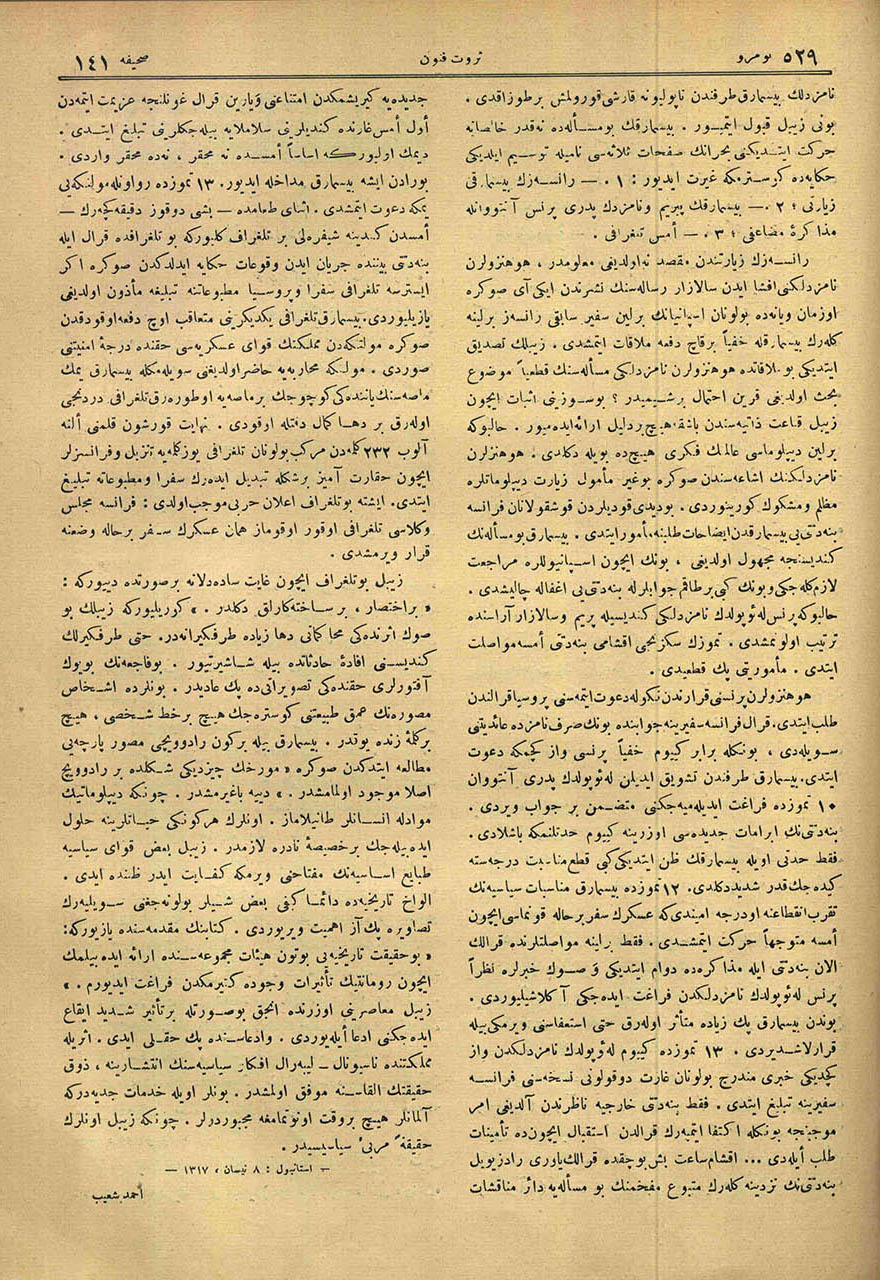 نومرو ٥٢٩
ثروت فنون
صحیفه ١٤١
نامزدلك بیسمارق طرفندن ناپولیونه قارشی قورولمش بر طوزاقدی .
بونی زیبل قبول ایتمیور . بیسمارقك بومسأله‌ده نه‌قدر خالصانه
حرکت ایتدیکنی بحرانك صفحات ثلاثه‌سی نامیله توسیم ایلدیکی
حکایه‌ده کوسترمکه غیرت ایدیور : ١ . — رانسه‌زك بیسمارقی
زیارتی ؛ ٢ . — بیسمارقك پیریم ونامزدك پدری پرنس آنتووانله
مذاکرهٔ مضاعفی ؛ ٣ . — أمس تلغرافی .
رانسه‌زك زیارتندن مقصد نه‌اولدیغی معلومدر ، هوهنزولرن
نامزدلکنی افشا ایدن سالازار رساله‌سنك نشرندن ایکی آی صوکره
اوزمان ویانه‌ده بولونان اسپانیانك برلین سفیر سابقی رانسه‌ز برلینه
کله‌رك بیسمارقله خفیاً برقاچ دفعه ملاقات ایتمشدی . زیبلك تصدیق
ایتدیکی بوملاقاتده هوهنزولرن نامزدلکی مسأله‌سنك قطعیاً موضوع
بحث اولدیغی قرین احتمال برشیمیدر ؟ بوسوزینی اثبات ایچون
زیبل قناعت ذاتیه‌سندن باشقه هیچ بردلیل ارائه ایده‌میور . حالبوکه
برلین دیپلوماسی عالمنك فکری هیچ‌ده بویله دکلدی ؛ هوهنزلرن
نامزدلکنك اشاعه‌سندن صوکره بوغیر مأمول زیارت دیپلوماتلره
مظلم ومشکوك کورینوردی . بودیدی‌قودیلردن قوشقولانان فرانسه
بنه‌دتی‌یی بیسمارقدن ایضاحات طلبنه مأمور ایتدی . بیسمارق بومسأله‌نك
کندیسنجه مجهول اولدیغی ، بونك ایچون اسپانیوللره مراجعت
لازم کله‌جکی وبونك کبی برطاقم جوابلرله بنه‌دتی‌یی اغفاله چالیشدی .
حالبوکه پرنس له‌ئوپولدك نامزدلکی کندیسیله پریم وسالازار آراسنده
ترتیب اولونمشدی . تموزك سکزنجی اقشامی بنه‌دتی أمسه مواصلت
ایتدی . مأموریتی پك قطعیدی .
هوهنزولرن پرنسی قرارندن نکوله دعوت ایتمه‌سنی پروسیا قرالندن
طلب ایتدی. قرال فرانسه سفیرینه جوابنده بونك صرف نامزده عائدیتنی
سویله‌دی ، بونکله برابر کییوم خفیاً پرنسی واز کچمکه دعوت
ایتدی. بیسمارق طرفندن تشویق ایدیلن له‌ئوپولدك پدری آنتووان
١٠ تموزده فراغت ایدیله‌میه‌جکنی متضمن بر جواب ویردی .
بنه‌دتی‌نك ابرامات جدیده‌سی اوزرینه کییوم حدتلنمکه باشلادی .
فقط حدتی اویله بیسمارقك ظن ایتدیکی کبی قطع مناسبت درجه‌سنه
کیده‌جك قدر شدید دکلدی. ١٢ تموزده بیسمارق مناسبات سیاسیه‌نك
تقرب انقطاعنه اودرجه امیندی که عسکرك سفر برحاله قونماسی ایچون
أمسه متوجهاً حرکت ایتمشدی . فقط برلینه مواصلتلرنده قرالك
الان بنه‌دتی ایله مذاکره‌ده دوام ایتدیکی و صوك خبرلره نظراً
پرنس له‌ئوپولدك نامزدلکدن فراغت ایده‌جکی آکلاشیلیوردی .
بوندن بیسمارق پك زیاده متأثر اوله‌رق حتی استعفاسنی ویرمکی بیله
قرارلاشدیردی . ١٣ تموزده کییوم له‌ئوپولدك نامزدلکدن واز
کچدیکی خبری مندرج بولونان غازت دوقولونی نسخه‌سنی فرانسه
سفیرینه تبلیغ ایتدی . فقط بنه‌دتی خارجیه ناظرندن آلدیغی امر
موجبنجه بونکله اکتفا ایتمیه‌رك قرالدن استقبال ایچون‌ده تأمینات
طلب أیله‌دی ... اقشام ساعت بش بوچقده قرالك یاوری رادزیویل
بنه‌دتی‌نك نزدینه کله‌رك متبوع مفخمنك بو مسأله‌یه دائر مناقشات
جدیده‌یه کیریشمکدن امتناعنی ویارین قرال غونلنجه عزیمت ایتمه‌دن
أول أمس غارنده کندیلرینی سلاملایه بیله‌جکلرینی تبلیغ ایتدی .
دیمك اولیور که اساساً أمسده نه محقر ، نه‌ده محقر واردی .
بورادن ایشه بیسمارق مداخله ایدیور. ١٣ تموزده روا‌نله مولتکه‌یی
یمکه دعوت ایتمشدی . اثنای طعامده — بشی دوقوز دقیقه کچه‌رك —
أمسدن کندینه شیفره‌لی بر تلغراف کلیورکه بو تلغرافده قرال ایله
بنه‌دتی بیننده جریان ایدن وقوعات حکایه ایدلدکدن صوکره اکر
ایسترسه تلغرافی سفرا وپروسیا مطبوعاتنه تبلیغه مأذون اولدیغی
یازیلیوردی. بیسمارق تلغرافی یکدیکرینی متعاقب اوچ دفعه اوقودقدن
صوکره مولتکه‌دن مملکتنك قوای عسکریه‌سی حقنده درجهٔ امنیتنی
صوردی . مولتکه محاربه‌یه حاضر اولدیغنی سویله‌مکله بیسمارق یمك
ماصه‌سنك یاننده‌کی کوچوجك برماصه‌یه اوطوره‌رق تلغرافی دردنجی
اوله‌رق بر دها کمال دقتله اوقودی . نهایت قورشون قلمنی ألنه
آلوب ٢٣٢ کله‌دن مرکب بولونان تلغرافی یوزکله‌یه تنزیل وفرانسزلر
ایچون حقارت آمیز برشکله تبدیل ایده‌رك سفرا ومطبوعاته تبلیغ
ایتدی. ایشته بوتلغراف اعلان حربی موجب اولدی : فرانسه مجلس
وکلاسی تلغرافی اوقور اوقوماز همان عسکرك سفر برحاله وضعنه
قرار ویرمشدی .
زیبل بوتلغراف ایچون غایت ساده‌دلانه برصورتده دییورکه :
« براختصار ، بر ساخته‌کارلق دکلدر . » کوریلیورکه زیبلك بو
صوك اثرنده‌کی محاکماتی دها زیاده طرفکیرانه‌در. حتی طرفکیرلك
کندیسنی افادهٔ حادثاتده بیله شاشیرتیور . بوفاجعه‌نك بویوك
آقتورلری حقنده‌کی تصویراتی‌ده پك عادیدر . بونلرده اشخاص
مصوره‌نك عمق طبیعتنی کوستره‌جك هیچ برخط شخصی ، هیچ
برکلهٔ زنده یوقدر . بیسمارق بیله برکون رادوویچی مصور پارچه‌یی
مطالعه ایتدکدن صوکره « مورخك چیزدیکی شکلده بر رادوویچ
اصلا موجود اولمامشدر . » دییه باغیرمشدر . چونکه دیپلوماتیك
موادله انسانلر طانیلاماز . اونلرك هرکونکی حیاتلرینه حلول
ایده‌بیله‌جك برخصیصهٔ نادره لازمدر . زیبل بعض قوای سیاسیه
طبایع اساسیه‌نك مفتاحنی ویرمکه کفایت ایدر ظننده ایدی .
الواح تاریخیه‌ده دائما کبی بعض شیلر بولونه‌جغنی سویلیه‌رك
تصاویره پك آز اهمیت ویریوردی . کتابنك مقدمه‌سنده یازیورکه:
« بوحقیقت تاریخیه‌یی بوتون هیئات مجموعه‌سنده ارائه ایده‌بیلمك
ایچون رومانتیك تأثیرات وجوده کتیرمکدن فراغت ایدیورم . »
زیبل معاصرینی اوزرنده انجق بوصورتله برتأثیر شدید ایقاع
ایده‌جکنی ادعا أیله‌یوردی . وادعاسنده پك حقلی ایدی . اثریله
مملکتنده ناسیونال – لیبه‌رال افکار سیاسیه‌سنك انتشارینه ، ذوق
حقیقتك القاسنه موفق اولمشدر . بونلر اویله خدمات جدیه‌درکه
آلمانلر هیچ بروقت اونوتمامغه مجبوردرلر . چونکه زیبل اونلرك
حقیقةً مربیٔ سیاسیسیدر .
— استانبول : ٨ نیسان ، ١٣١٧ —
احمد شعیب